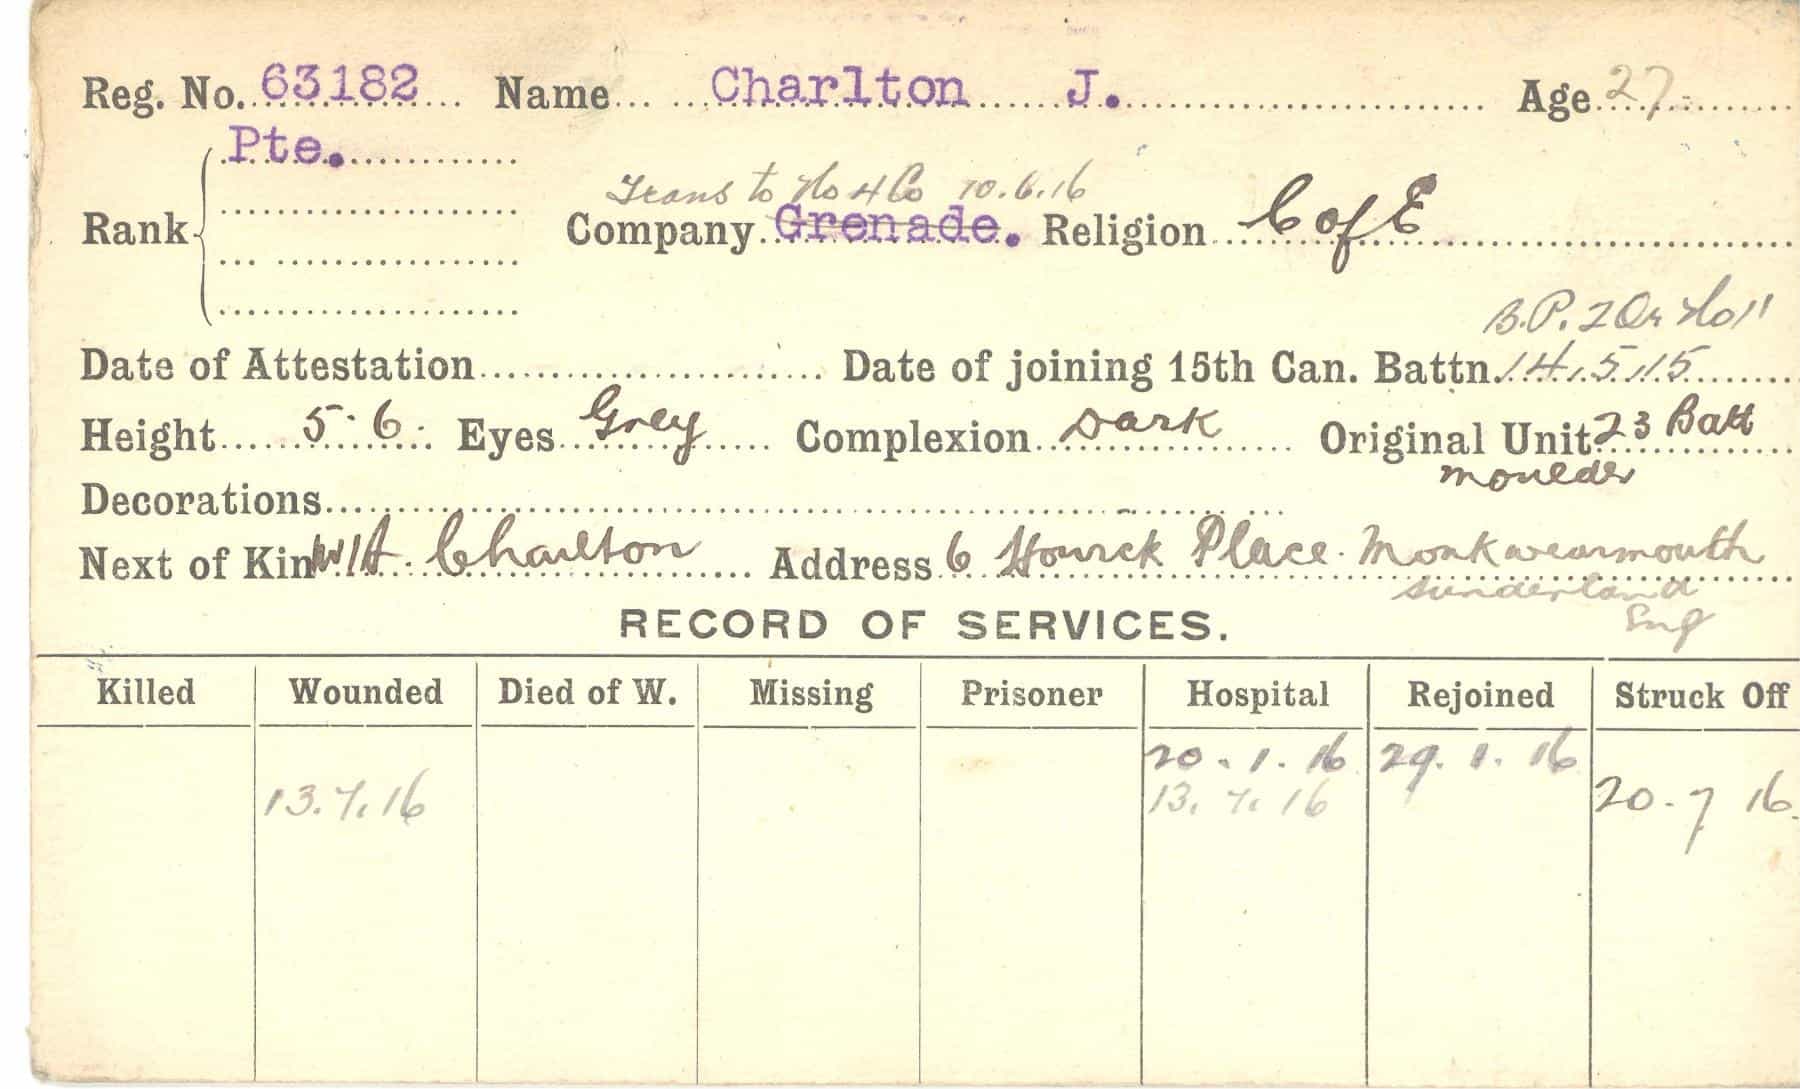 Reg. No. 63182 Name Charlton J. Age 27
Pte.
Trans to No 4 Co 10.6.16
Rank Company Grenade. Religion C of E
B.P. 2 Or No 11
Date of Attestation Date of joining 15th Can. Battn. 14.5.15
Height 5.6. Eyes Grey Complexion Dark Original Unit 23 Batt
moulder
Decorations
Next of Kin W A Charlton Address 6 Howick Place. Monkwearmouth
Sunderland
Eng
RECORD OF SERVICES.
Killed Wounded Died of W. Missing Prisoner Hospital Rejoined Struck Off
20.1.16 29.1.16
13.7.16 13.7.16 20-7 16.